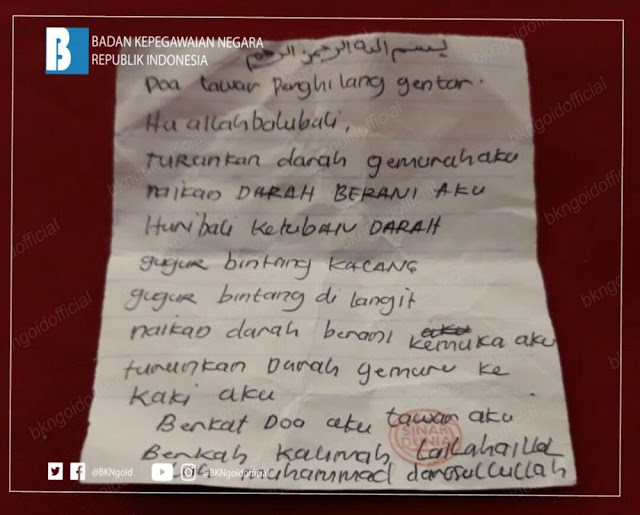 BADAN KEPEGAWAIAN NEGARA
REPUBLIK INDONESIA
بسم الله الرحمن الرحيم
Doa tawar Penghilang gentar.
Hu allah balubali,
turunkan darah gemurah aku
naikan DARAH BERANI AKU
Huni bali ketuban DARAH
gugur bintang KACANG
gugur bintang di langit
naikan darah berani kemuka aku
turunkan Darah gemuru ke
kaki aku
Berkat Doa aku tawar aku
SINAR DUNIA
Berkah kalimah Lailahailla
muhammad darosullullah
@BKNgoid
@BKNgoidofficial
bkngoidofficial